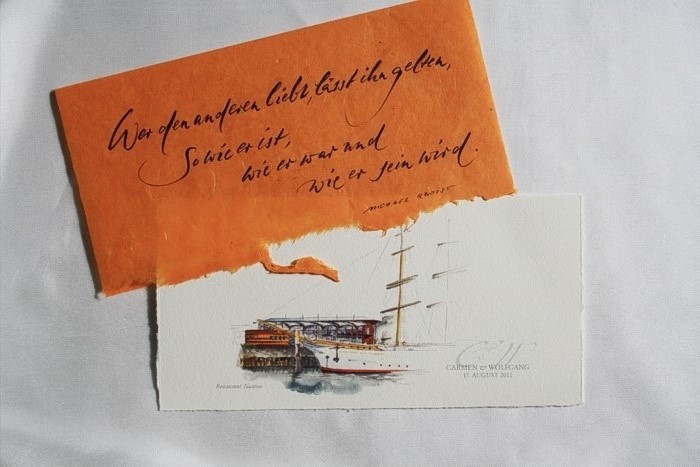 Wer den anderen liebt, lässt ihn gelten,
So wie er ist,
wie er war und
wie er sein wird.
CARMEN & WOLFGANG
17. AUGUST 2012
Restaurant